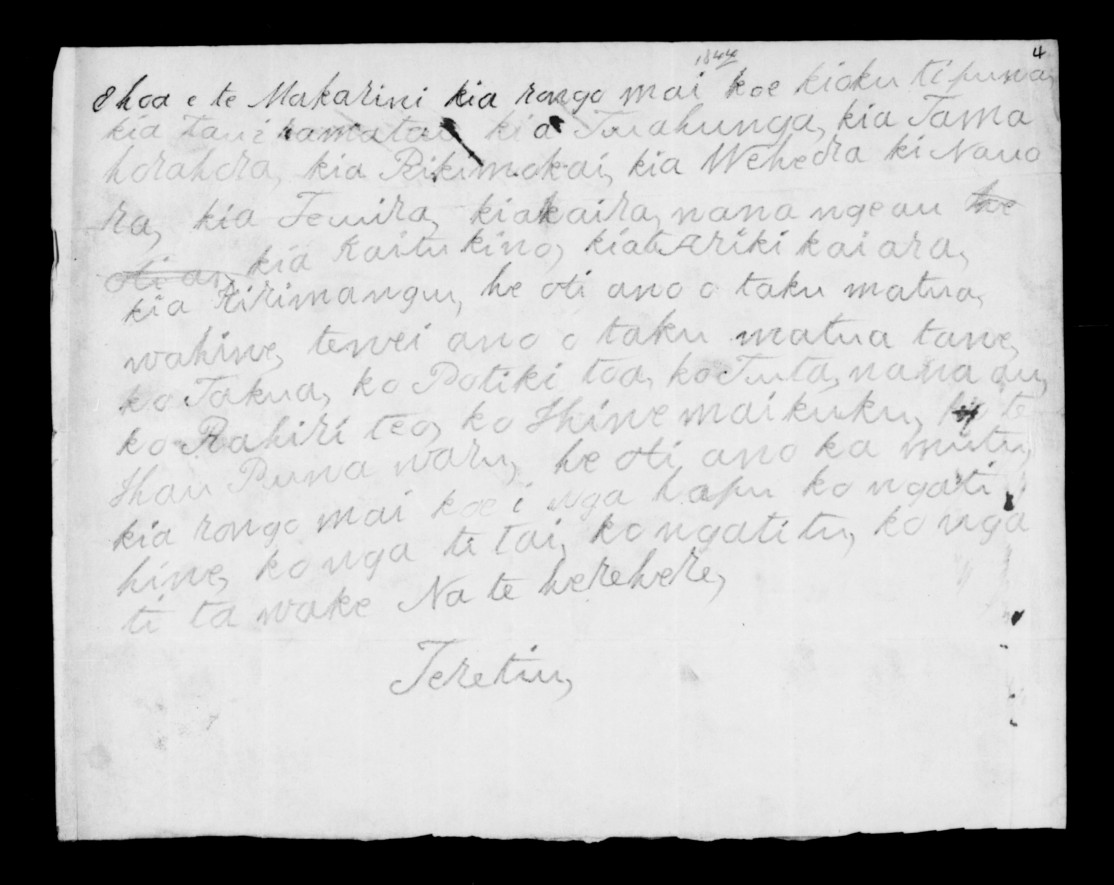 4
1844
E hoa e te Makarini kia rongo mai koe kioku tipuna
kia Tani ramatau kia Tauahunga, kia Tama
horahora, kia Rikimokai, kia Weheora ki Nano
ra, kia Temira, kiakaira, nana ngeau he
oti au, kia Kaitukino, kiateAriki kaiara,
kia Kirimangu, he oti ano o taku matua,
wahine, tewei ano o taku matua tane,
ko Takua, ko Potiki toa, ko Tuuta, nana au,
ko Rahiri teo, ko Hhine maikuku, te
Hhau Puna waru, he oti ano ka mutu,
kia rongo mai koe i nga hapu ko ngati
hine, ko nga ti tai, ko ngati tu, ko nga
ti ta wake Na te herehere,
Teretiu,